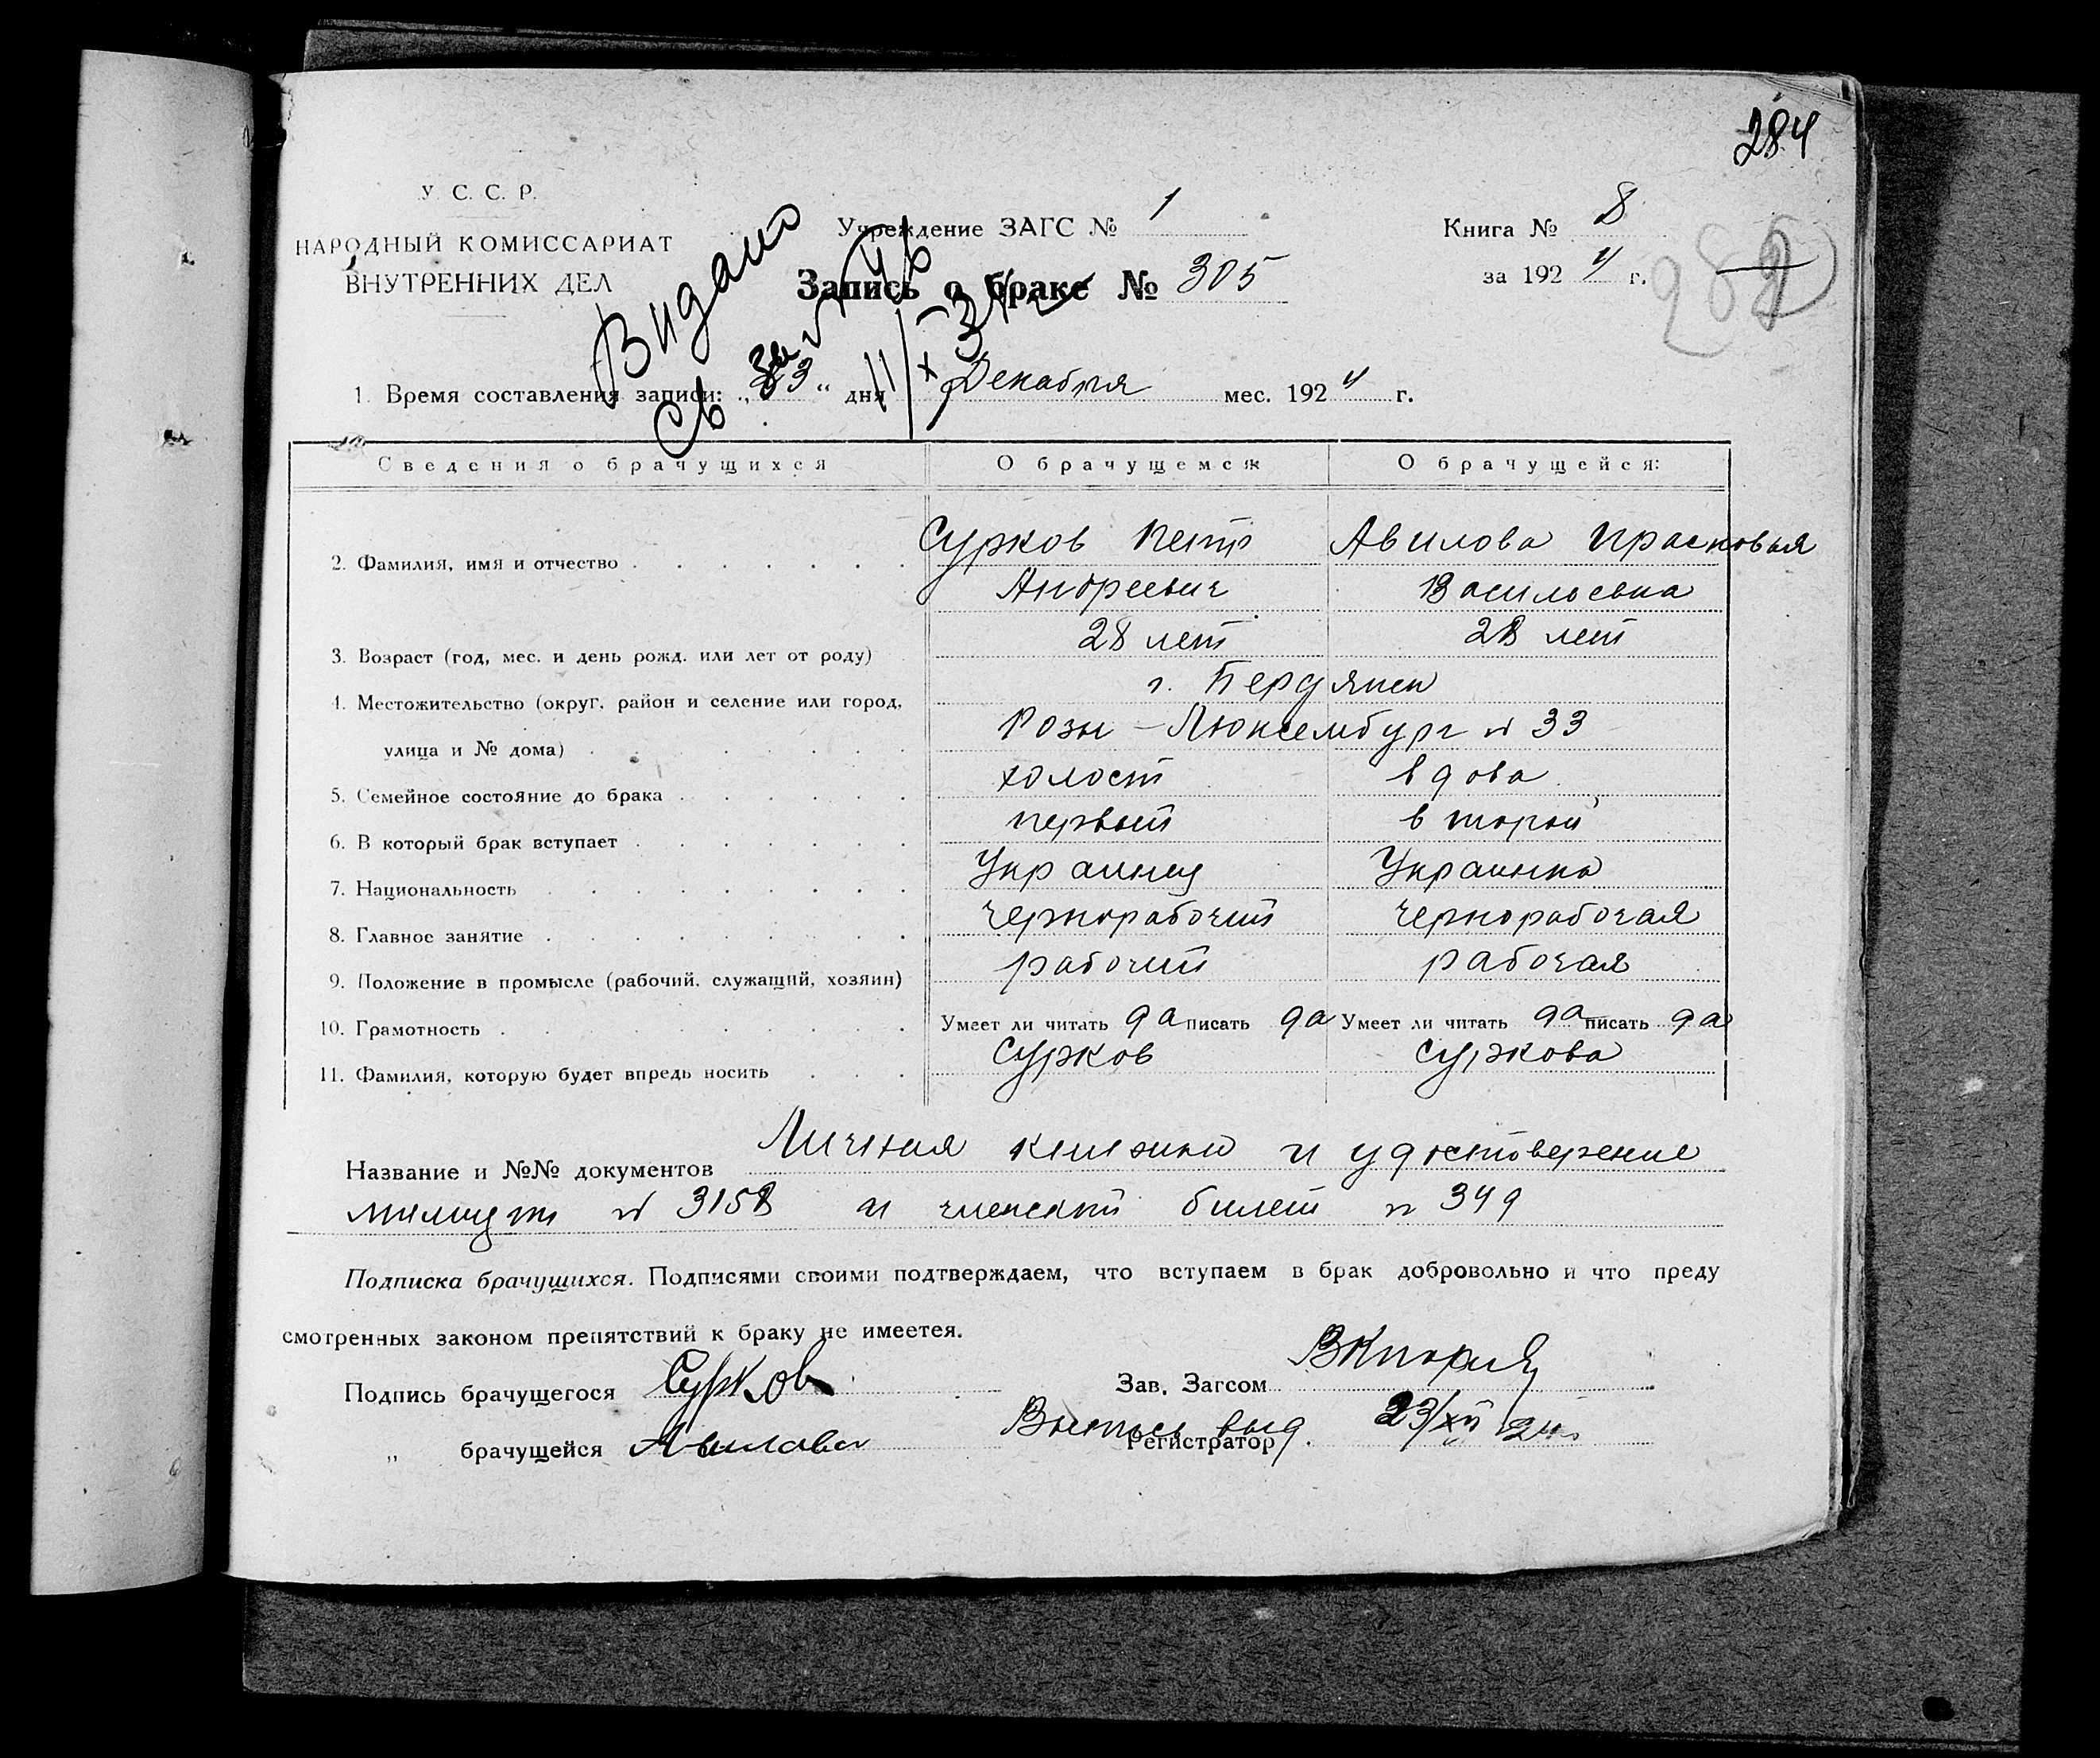 284
У. С. С. Р.
НАРОДНЫЙ КОМИССАРИАТ
ВНУТРЕННИХ ДЕЛ
Учреждение ЗАГС № 1
Книга № 8
за 1924 г.
Запись о браке № 305
Видано
Св
1. Время составления записи: „23“ дня Декабря мес. 1924 г.
Сведения о брачущихся О брачущемся: О брачущейся:
2. Фамилия, имя и отчество Сурков Петр Авилова Прасковья
Андреевич Васильевна
3. Возраст (год, мес. и день рожд. или лет от роду) 28 лет 28 лет
4. Местожительство (округ, район и селение или город, г. Бердянск
улица и № дома) Розы-Люксембург № 33
5. Семейное состояние до брака холост вдова
6. В который брак вступает первый второй
7. Национальность Украинец Украинка
8. Главное занятие чернорабочий чернорабочая
9. Положение в промысле (рабочий, служащий, хозяин) рабочий рабочая
10. Грамотность Умеет ли читать да писать да Умеет ли читать да писать да
11. Фамилия, которую будет впредь носить Сурков Суркова
Название и №№ документов Личная книжка и удостоверение
милиции № 3158 и членский билет № 349
Подписка брачущихся. Подписями своими подтверждаем, что вступаем в брак добровольно и что преду
смотренных законом препятствий к браку не имеется.
Подпись брачущегося Сурков Зав. Загсом
„ брачущейся Авилова Регистратор
Выпись выд. 23/XII 24